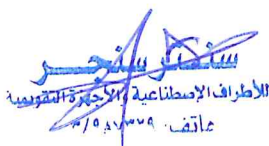 سنتر سنجر
للأطراف الإصطناعية والأجهزة التقويمية
هاتف: